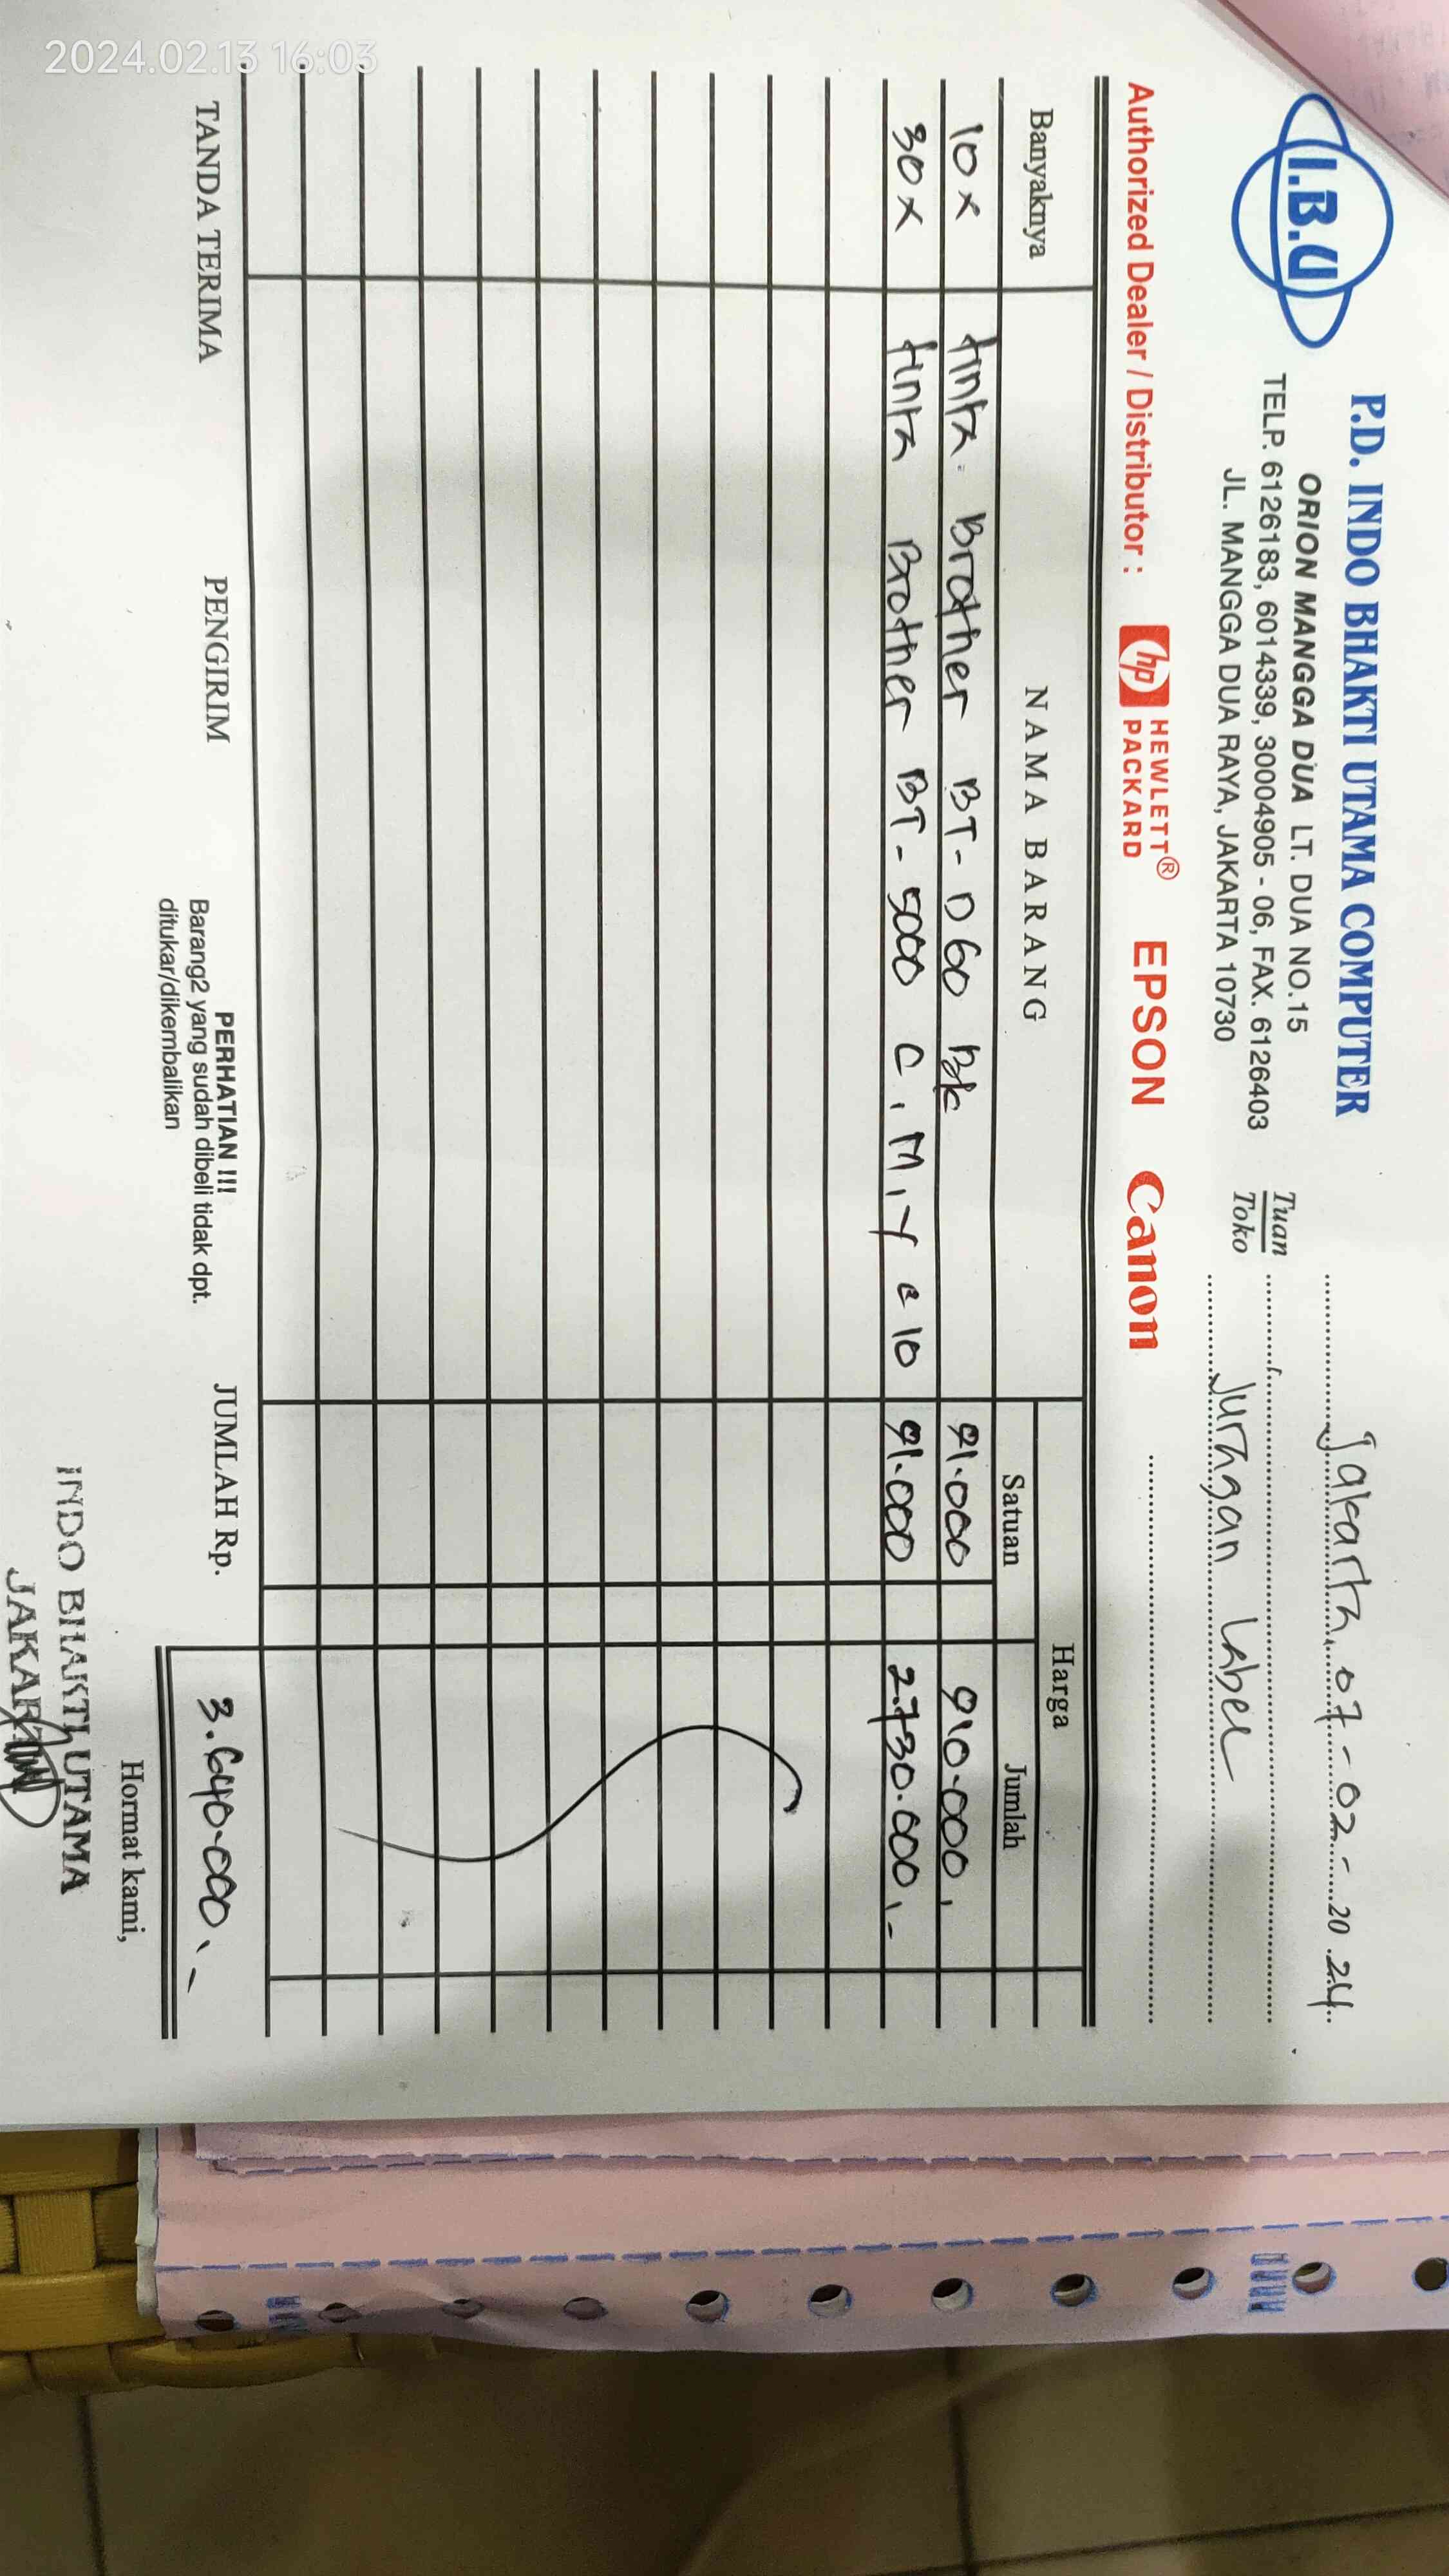 2024.02.13 16:03
I.B.U
P.D. INDO BHAKTI UTAMA COMPUTER
ORION MANGGA DUA LT. DUA NO.15
TELP. 6126183, 6014339, 30004905 - 06, FAX. 6126403
JL. MANGGA DUA RAYA, JAKARTA 10730
Jakarta, 07 - 02 - 20 24
Tuan
Toko
Juragan Label
Authorized Dealer / Distributor : hp HEWLETT® PACKARD EPSON Canon
Banyaknya NAMA BARANG Harga
Satuan Jumlah
10 x tinta Brother BT - D60 Bk 91.000 910.000,
30 x tinta Brother BT - 5000 C, M, Y @ 10 91.000 2.730.000,-
TANDA TERIMA PENGIRIM
PERHATIAN !!!
Barang2 yang sudah dibeli tidak dpt.
ditukar/dikembalikan
JUMLAH Rp. 3.640.000,-
Hormat kami,
INDO BHAKTI UTAMA
JAKARTA